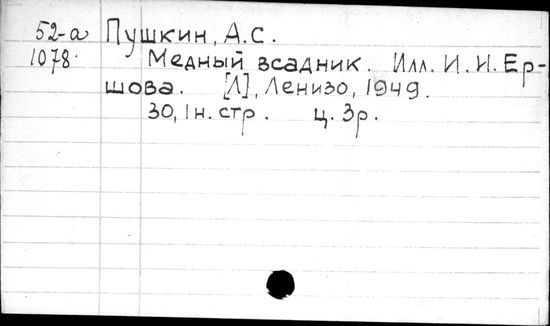 52-а Пушкин, А.С.
1078. Медный всадник. Илл. И. И. Ер-
шова. [Л], Ленизо, 1949.
30, 1 н. стр. ц. 3р.